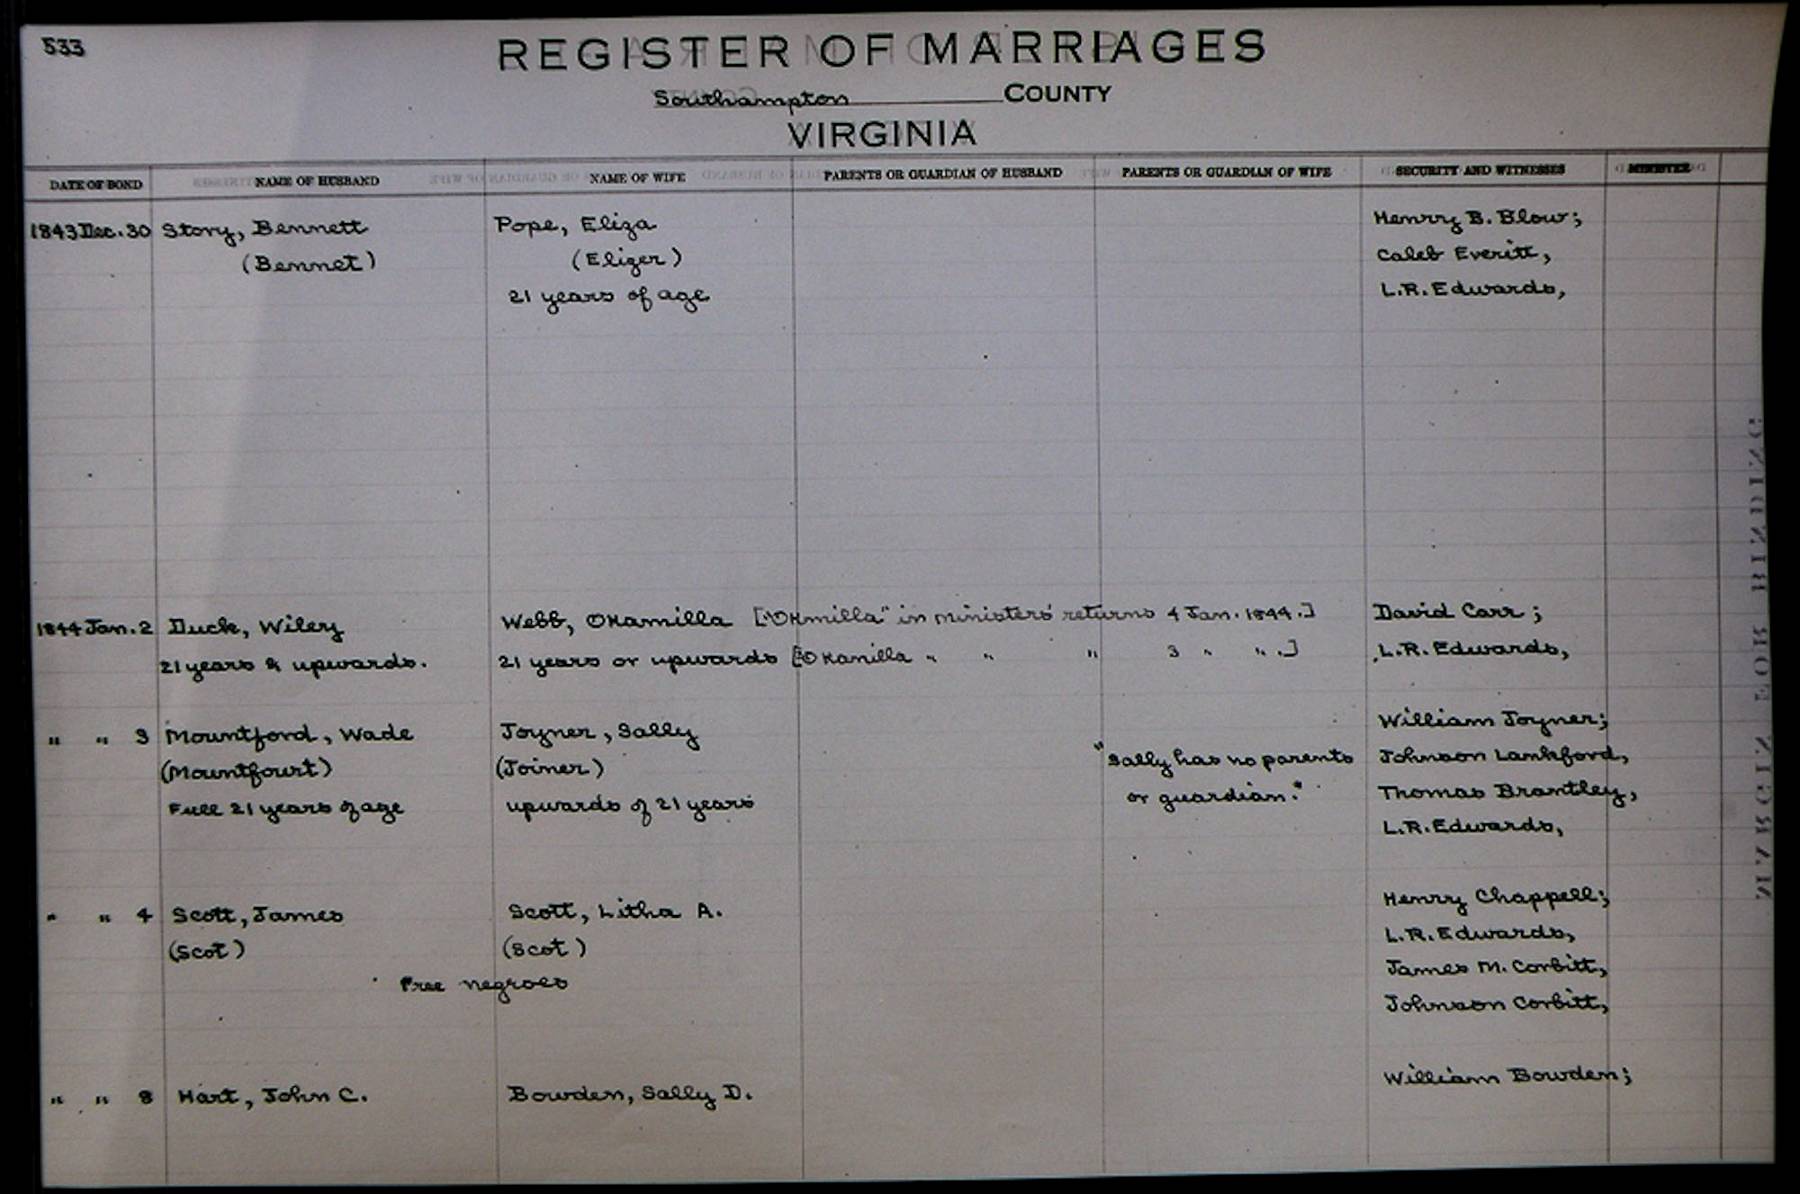 533
REGISTER OF MARRIAGES
Southampton COUNTY
VIRGINIA
DATE OF BOND NAME OF HUSBAND NAME OF WIFE PARENTS OR GUARDIAN OF HUSBAND PARENTS OR GUARDIAN OF WIFE SECURITY AND WITNESSES MINISTER
1843 Dec. 30 Story, Bennett Pope, Eliza Henry B. Blow;
(Bennet) (Elizer) Caleb Everitt,
21 years of age L.R. Edwards,
1844 Jan. 2 Duck, Wiley Webb, Okamilla ["Okmilla" in ministers' returns 4 Jan. 1844.] David Carr;
21 years & upwards. 21 years or upwards [Okanilla " " " 3 " " .] L.R. Edwards,
" " 3 Mountford, Wade Joyner, Sally William Joyner;
(Mountfourt) (Joiner) "Sally has no parents Johnson Lankford,
Full 21 years of age upwards of 21 years or guardian." Thomas Brantley,
L.R. Edwards,
" " 4 Scott, James Scott, Litha A. Henry Chappell;
(Scot) (Scot) L.R. Edwards,
Free negroes James M. Corbitt,
Johnson Corbitt,
" " 8 Hart, John C. Bowden, Sally D. William Bowden;